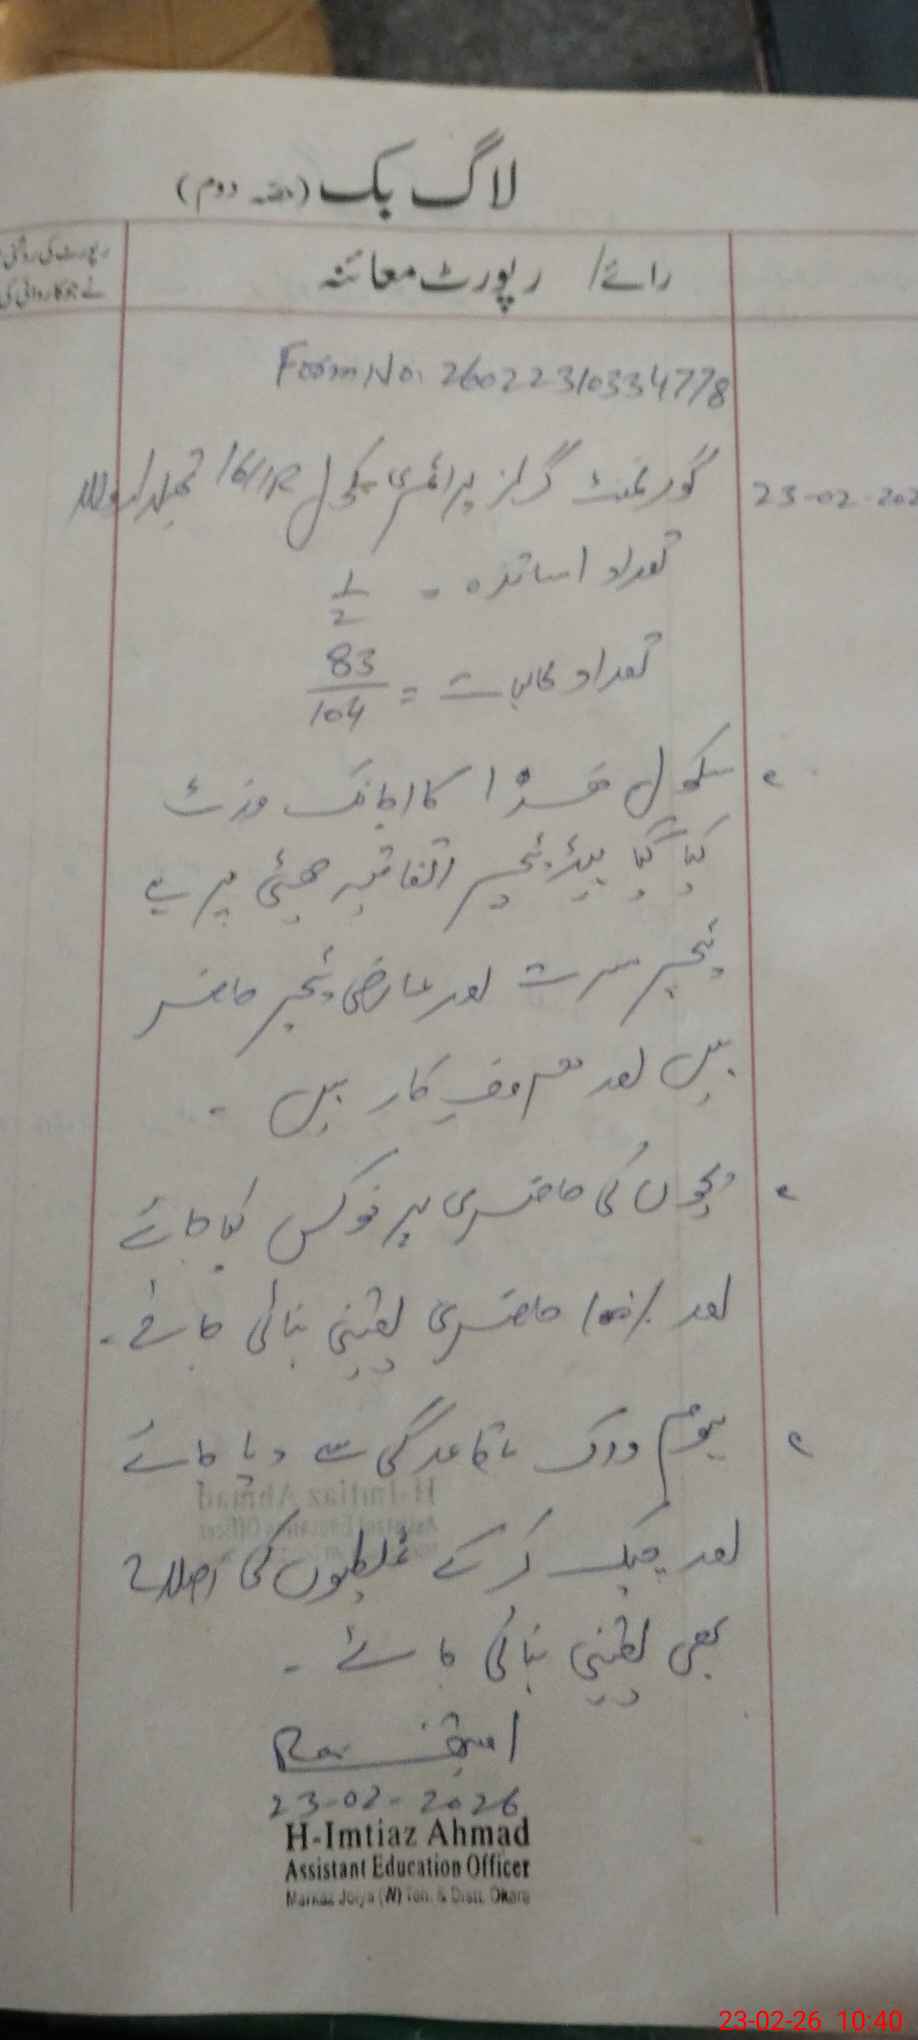 لاگ بک (حصہ دوم)
رائے / رپورٹ معائنہ
رپورٹ کی روشنی
نے جو کاروائی کی
Form No. 26022310334778
23-02-202
گورنمنٹ گرلز پرائمری سکول 16/1R
تعداد اساتذہ = 1/2
تعداد طالبات = 83/104
سکول ھذا کا اچانک وزٹ
کیا گیا ہیڈ ٹیچر اتفاقیہ چھٹی پر ہے
ٹیچر مسرت اور عارضی ٹیچر حاضر
ہیں اور مصروف کار ہیں ۔
بچوں کی حاضری پر فوکس کیا جائے
اور 100% حاضری یقینی بنائی جائے ۔
ہوم ورک باقاعدگی سے دیا جائے
اور چیک کر کے غلطیوں کی اصلاح
بھی یقینی بنائی جائے ۔
23-02-2026
H-Imtiaz Ahmad
Assistant Education Officer
Markaz Jorya (W) Teh. & Distt. Okara
23-02-26 10:40